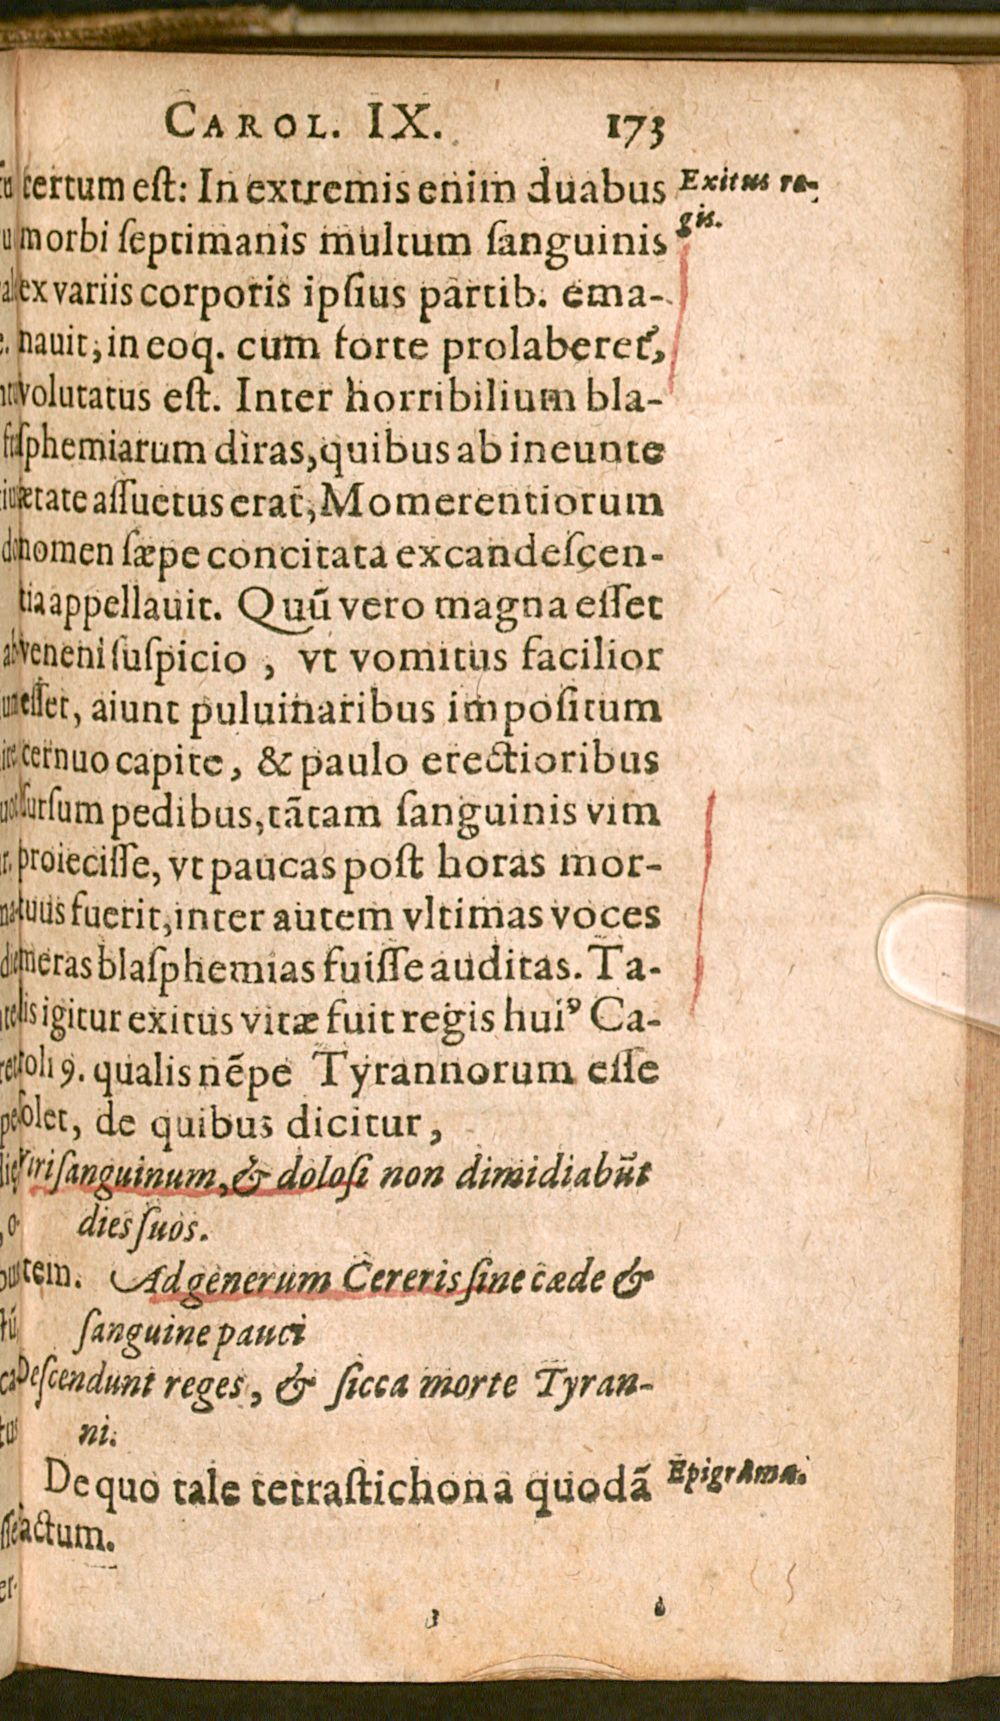 CAROL. IX. 173
certum est: In extremis enim duabus
Exitus re-
gis.
morbi septimanis multum sanguinis
ex variis corporis ipsius partib. ema-
nauit, in eoq. cum forte prolaberet,
volutatus est. Inter horribilium bla-
sphemiarum diras, quibus ab ineunte
ætate assuetus erat, Momerentiorum
nomen sæpe concitata excandescen-
tia appellauit. Quū vero magna esset
veneni suspicio, vt vomitus facilior
esset, aiunt puluinaribus impositum
cernuo capite, & paulo erectioribus
sursum pedibus, tātam sanguinis vim
proiecisse, vt paucas post horas mor-
tuus fuerit, inter autem vltimas voces
meras blasphemias fuisse auditas. Ta-
lis igitur exitus vitæ fuit regis huiꝰ Ca-
roli 9. qualis nēpe Tyrannorum esse
solet, de quibus dicitur,
Viri sanguinum, & dolosi non dimidiabūt
dies suos.
tem. Ad generum Cereris sine cæde &
sanguine pauci
Descendunt reges, & sicca morte Tyran-
ni.
De quo tale tetrastichon a quodā
Epigrama.
actum.